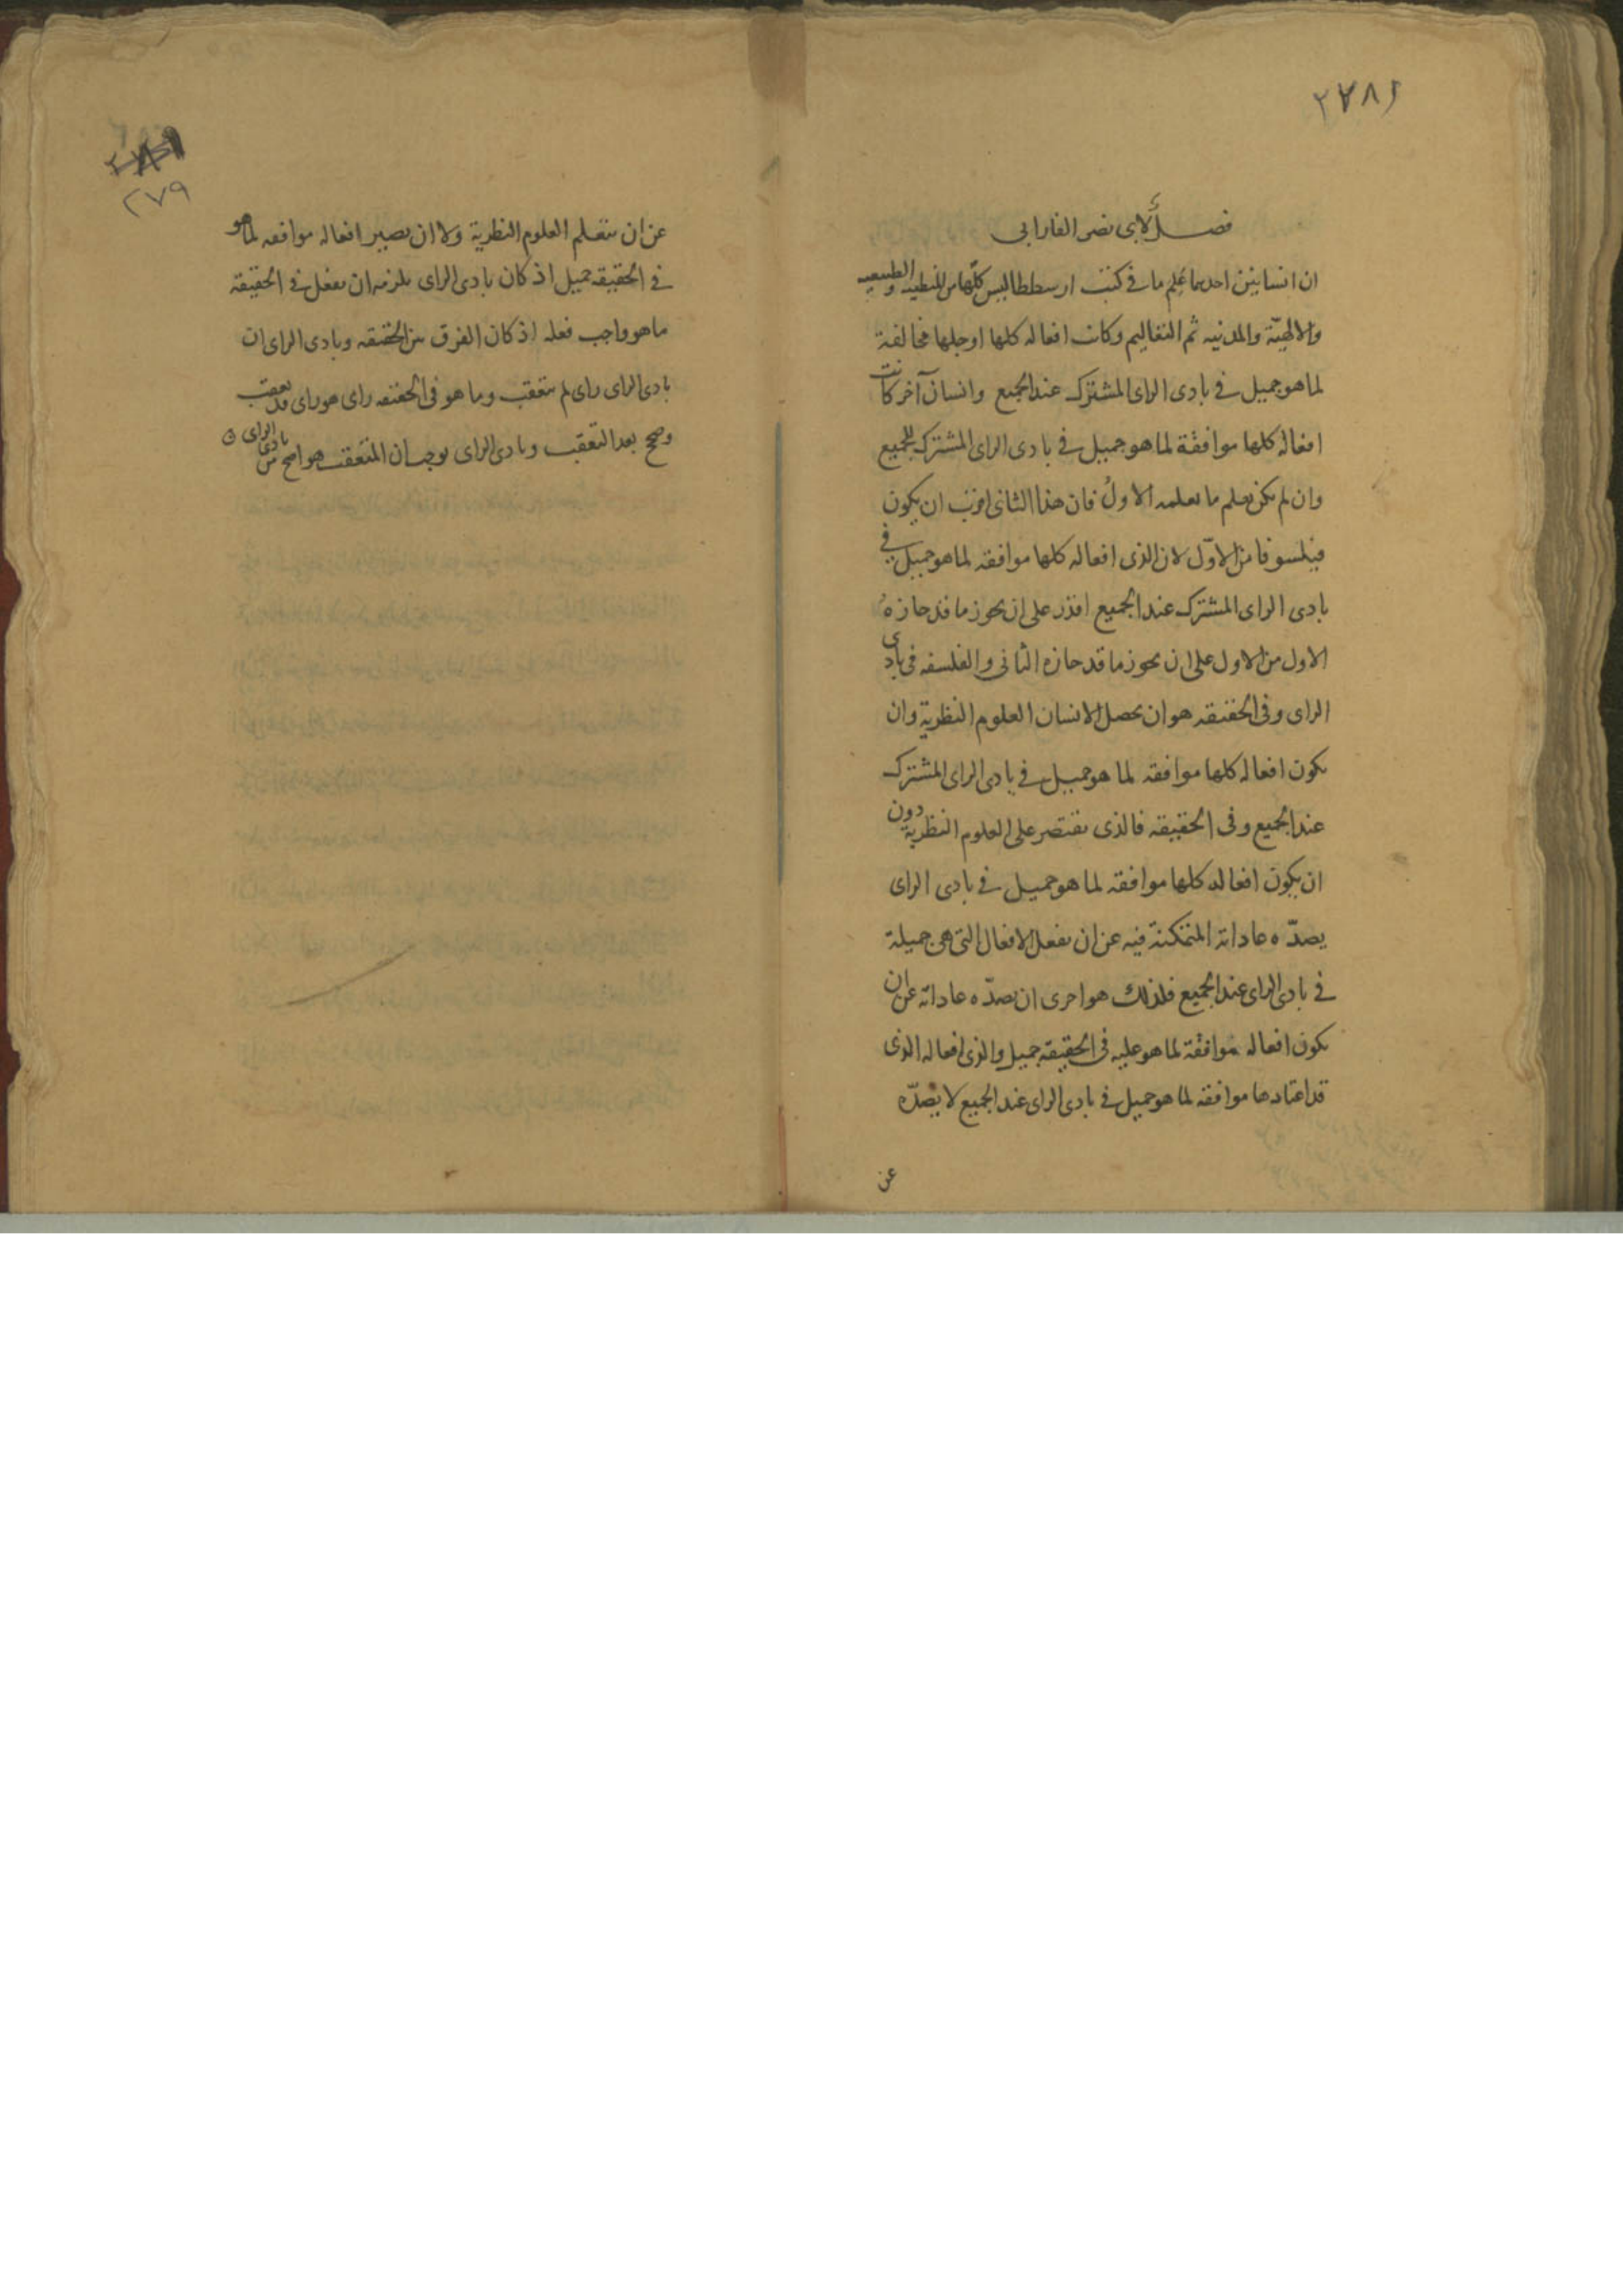 ٢٧٨
فصل لابى نصر الفارابى
ان انسانين احدهما علم ما فى كتب ارسططاليس كلها من المنطقيه والطبيعيه
والالهيّة والمدنيه ثم التعاليم وكانت افعاله كلها او جلها مخالفة
لما هو جميل فى بادى الراى المشترك عند الجميع وانسان آخر كانت
افعاله كلها موافقة لما هو جميل فى بادى الراى المشترك للجميع
وان لم يكن يعلم ما يعلمه الاول فان هذا الثانى اقرب ان يكون
فيلسوفا من الاوّل لان الذى افعاله كلها موافقه لما هو جميل فى
بادى الراى المشترك عند الجميع اقدر على ان يحوز ما قد حازه
الاول من الاول على ان يحوز ما قد حازه الثانى والفلسفه فى بادى
الراى وفى الحقيقه هو ان يحصل للانسان العلوم النظرية وان
يكون افعاله كلها موافقه لما هو جميل فى بادى الراى المشترك
عند الجميع وفى الحقيقه فالذى يقتصر على العلوم النظرية دون
ان يكون افعاله كلها موافقه لما هو جميل فى بادى الراى
يصدّه عاداته المتمكنة فيه عن ان يفعل الافعال التى هى جميلة
فى بادى الراى عند الجميع فلذلك هو احرى ان يصدّه عاداته عن ان
يكون افعاله موافقة لما هو عليه فى الحقيقه جميل والذى افعاله الذى
قد اعتادها موافقه لما هو جميل فى بادى الراى عند الجميع لا يصدّه
عن
٢٧٩
عن ان يتعلم العلوم النظرية ولا ان يصير افعاله موافقه لما هو
فى الحقيقه جميل اذ كان بادى الراى يلزمه ان يفعل فى الحقيقه
ما هو واجب فعله اذ كان الفرق بين الحقيقه وبادى الراى ان
بادى الراى راى لم يتعقب وما هو فى الحقيقه راى هو راى قد تعقب
وصحح بعد التعقب وبادى الراى يوجب ان المتعقب هو اصح من بادى الراى